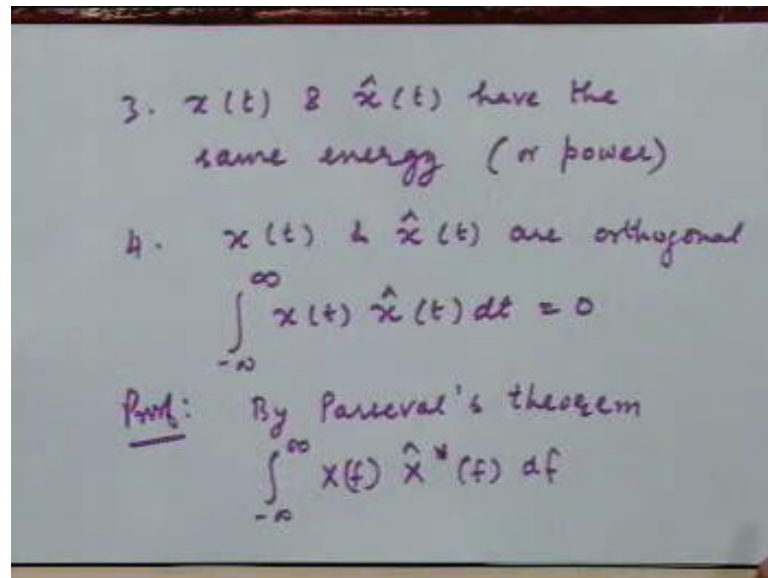 3. x(t) & x̂(t) have the
same energy (or power)
4. x(t) & x̂(t) are orthogonal
∫_{-∞}^{∞} x(t) x̂(t) dt = 0
Proof: By Parseval's theorem
∫_{-∞}^{∞} X(f) X̂*(f) df